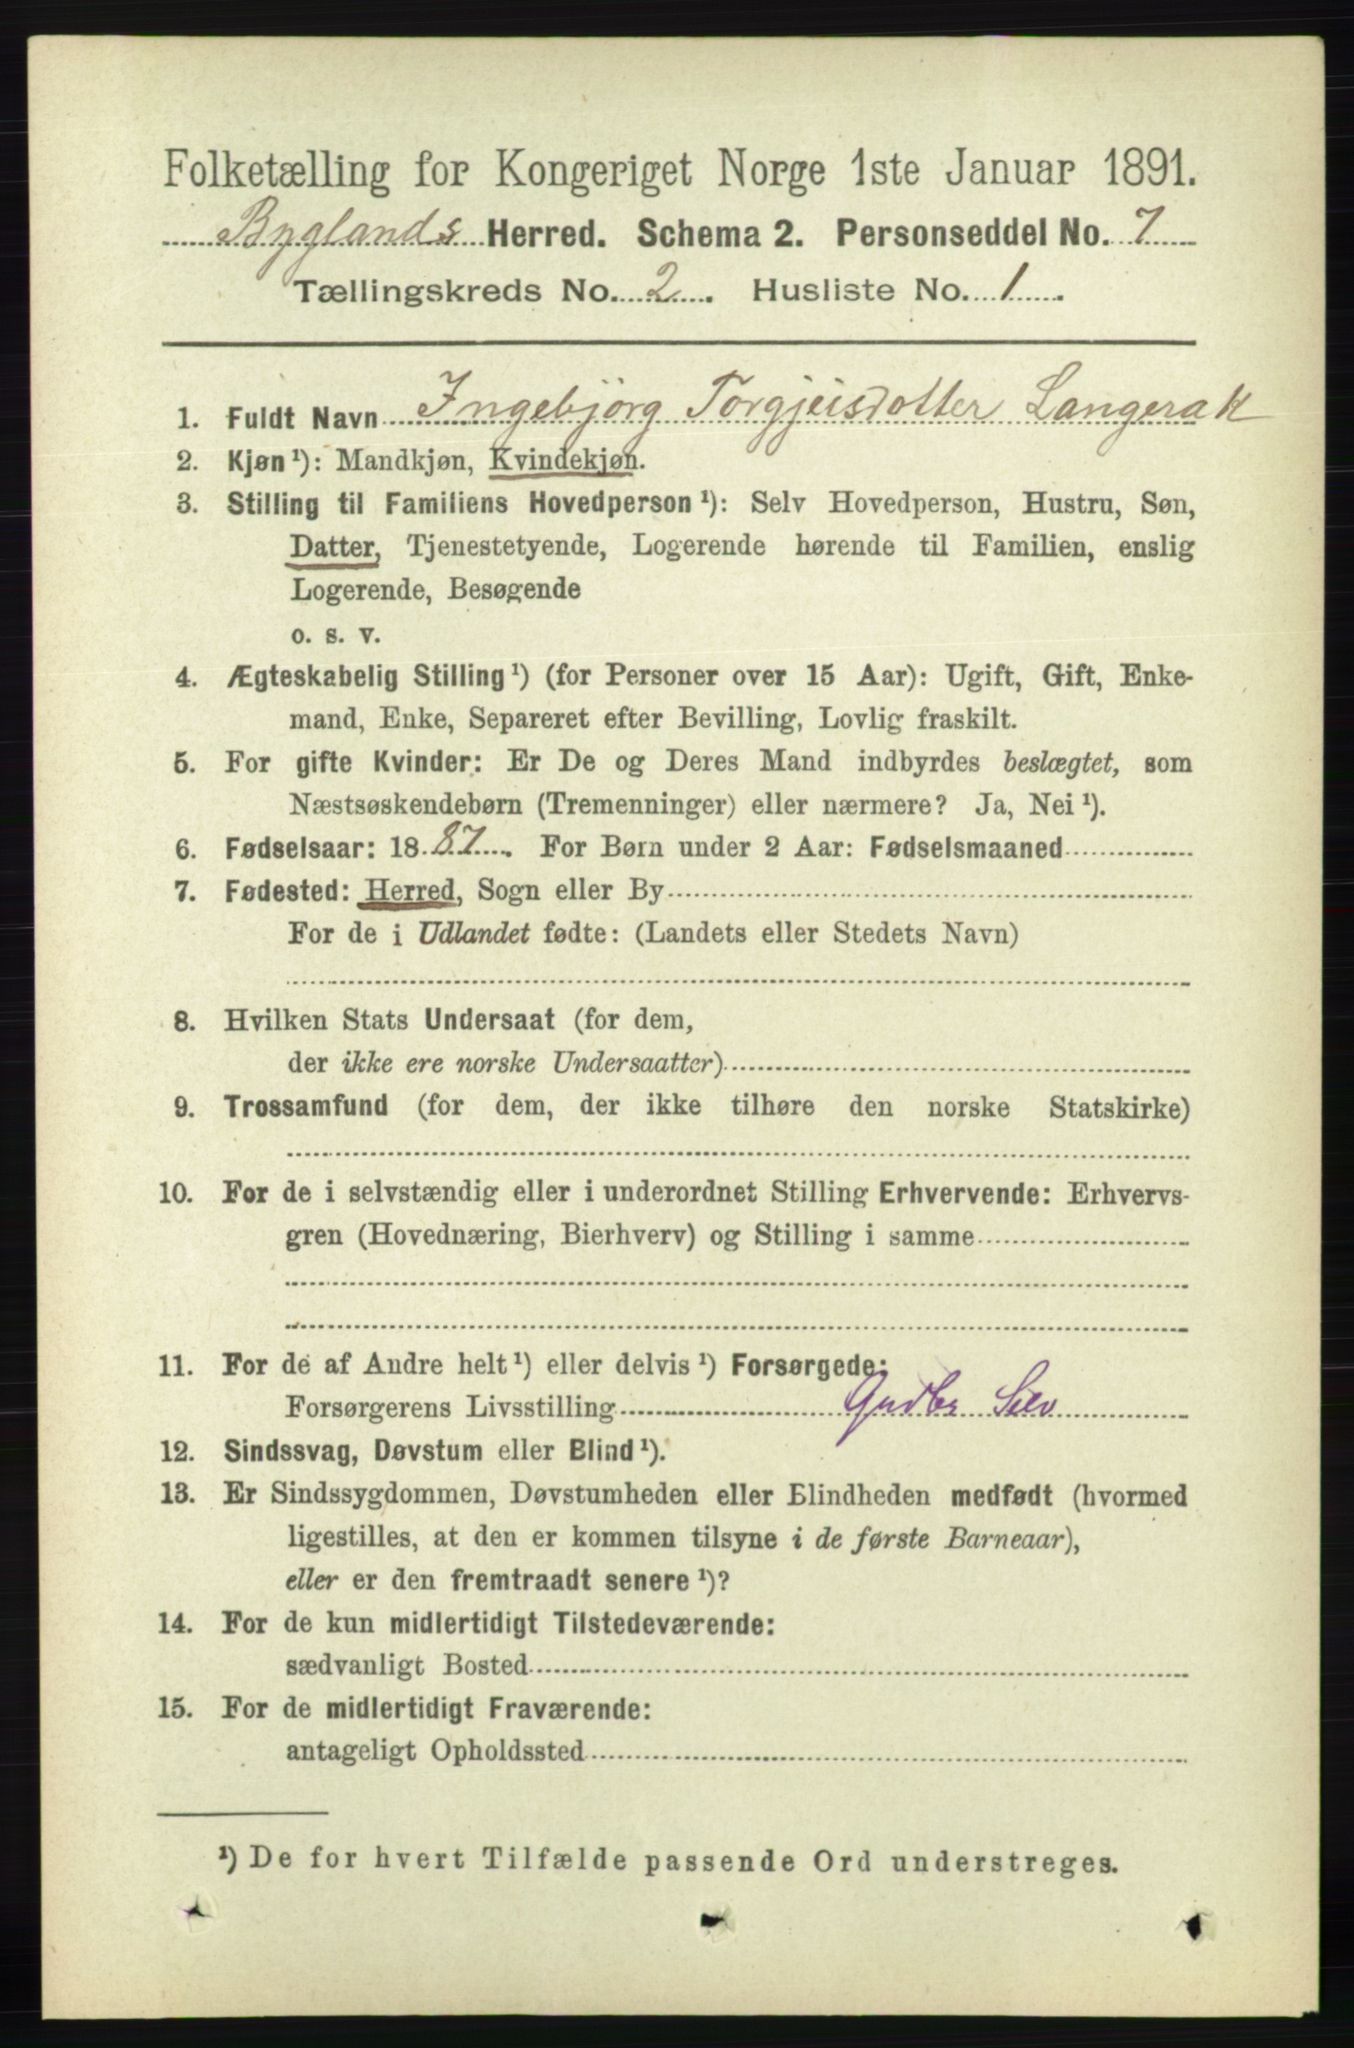 Folketælling for Kongeriget Norge 1ste Januar 1891.
Byglands Herred. Schema 2. Personseddel No. 7
Tællingskreds No. 2. Husliste No. 1.
1. Fuldt Navn Ingebjörg Torgjeisdotter Langerak
2. Kjøn ¹): Mandkjøn, Kvindekjøn.
3. Stilling til Familiens Hovedperson ¹): Selv Hovedperson, Hustru, Søn,
Datter, Tjenestetyende, Logerende hørende til Familien, enslig
Logerende, Besøgende
o. s. v.
4. Ægteskabelig Stilling ¹) (for Personer over 15 Aar): Ugift, Gift, Enke-
mand, Enke, Separeret efter Bevilling, Lovlig fraskilt.
5. For gifte Kvinder: Er De og Deres Mand indbyrdes beslægtet, som
Næstsøskendebørn (Tremenninger) eller nærmere? Ja, Nei ¹).
6. Fødselsaar: 1887. For Børn under 2 Aar: Fødselsmaaned
7. Fødested: Herred, Sogn eller By
For de i Udlandet fødte: (Landets eller Stedets Navn)
8. Hvilken Stats Undersaat (for dem,
der ikke ere norske Undersaatter)
9. Trossamfund (for dem, der ikke tilhøre den norske Statskirke)
10. For de i selvstændig eller i underordnet Stilling Erhvervende: Erhvervs-
gren (Hovednæring, Bierhverv) og Stilling i samme
11. For de af Andre helt ¹) eller delvis ¹) Forsørgede:
Forsørgerens Livsstilling Gndbr Selv
12. Sindssvag, Døvstum eller Blind ¹).
13. Er Sindssygdommen, Døvstumheden eller Blindheden medfødt (hvormed
ligestilles, at den er kommen tilsyne i de første Barneaar),
eller er den fremtraadt senere ¹)?
14. For de kun midlertidigt Tilstedeværende:
sædvanligt Bosted
15. For de midlertidigt Fraværende:
antageligt Opholdssted
¹) De for hvert Tilfælde passende Ord understreges.